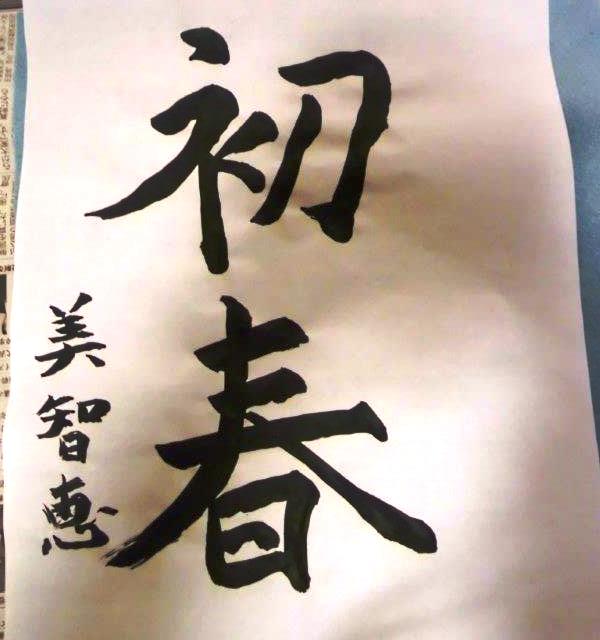 初春
美智恵